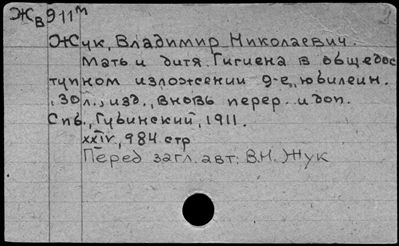 Жв911м
Жук, Владимир Николаевич.
Мать и дитя. Гигиена в общедос
тупном изложении 9-е, юбилейн.
, 30 л., изд., вновь перер. и доп.
Спб., Губинский, 1911.
XXIV, 984 стр
Перед загл. авт: В.Н. Жук